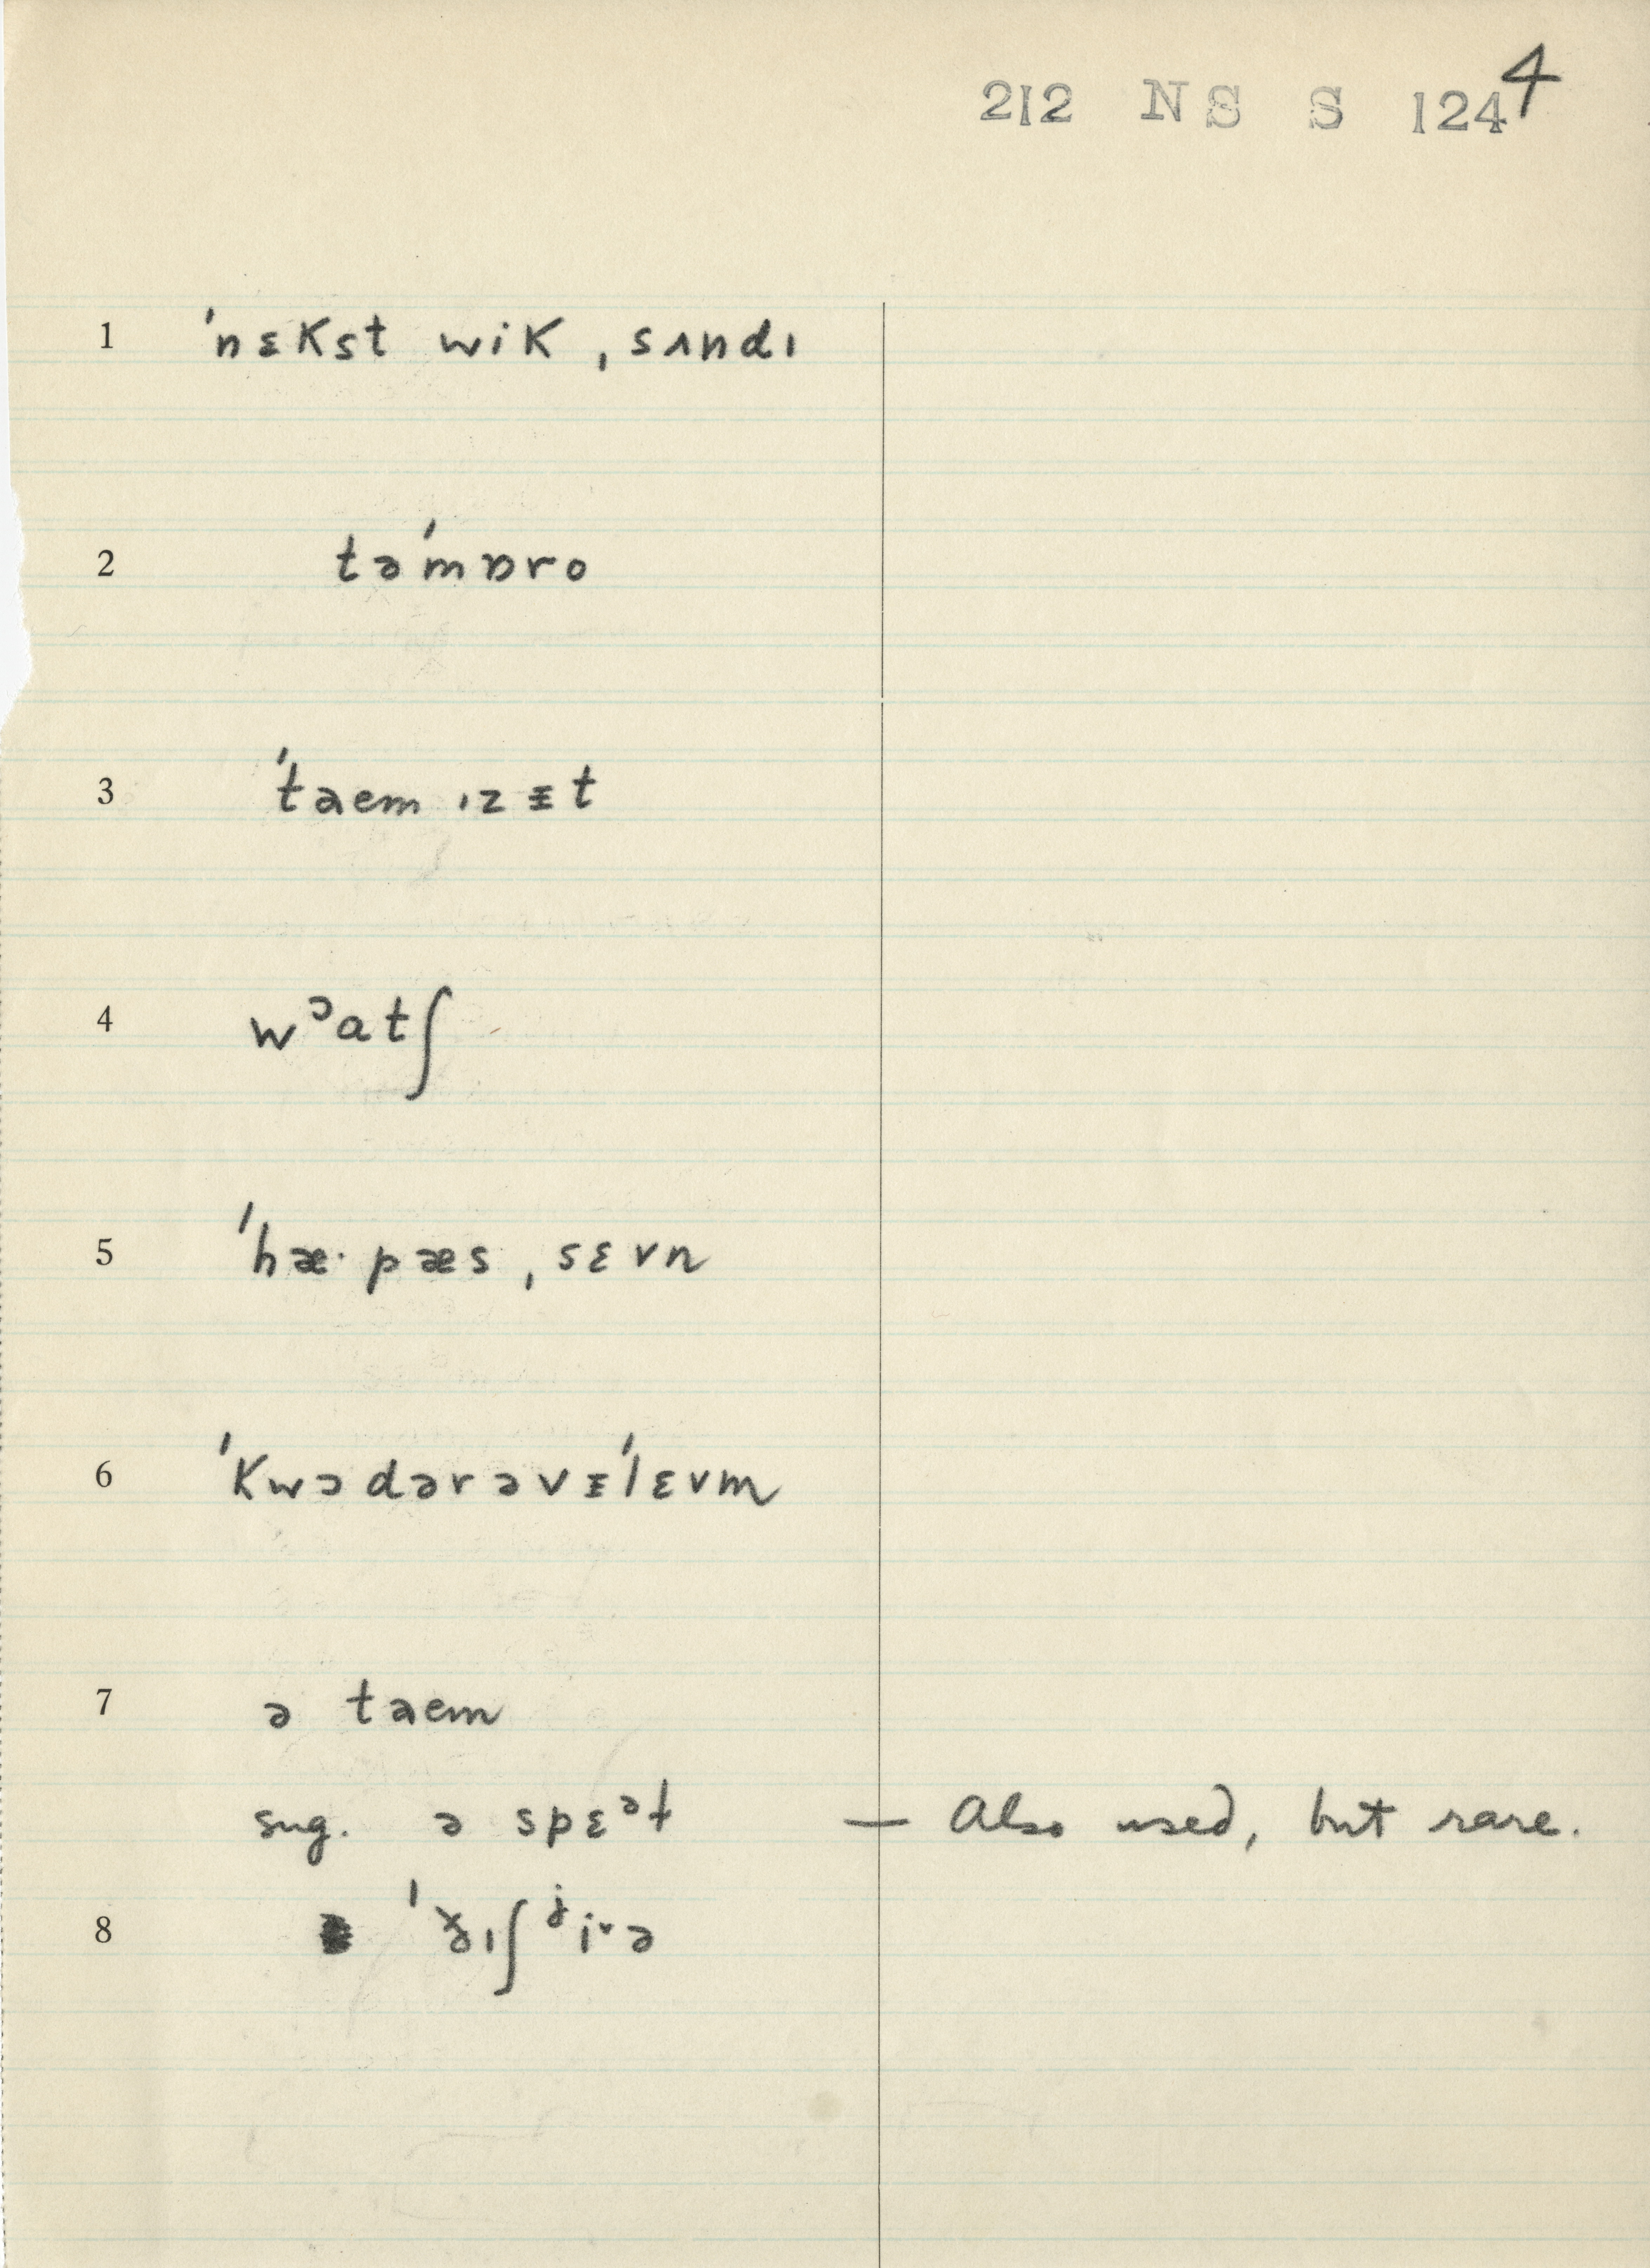 212 NS S 124 4
1 ˈnɛkst wik ˌsʌndɪ
2 təˈmɒro
3 ˈtaem ɪz ᵻt
4 wᵓatʃ
5 ˈhæ· pæs ˌsɛvn
6 ˈkwɔdərəvᵻˈlɛvm
7 ə taem
sug. ə spɛᵊt — Also used, but rare.
8